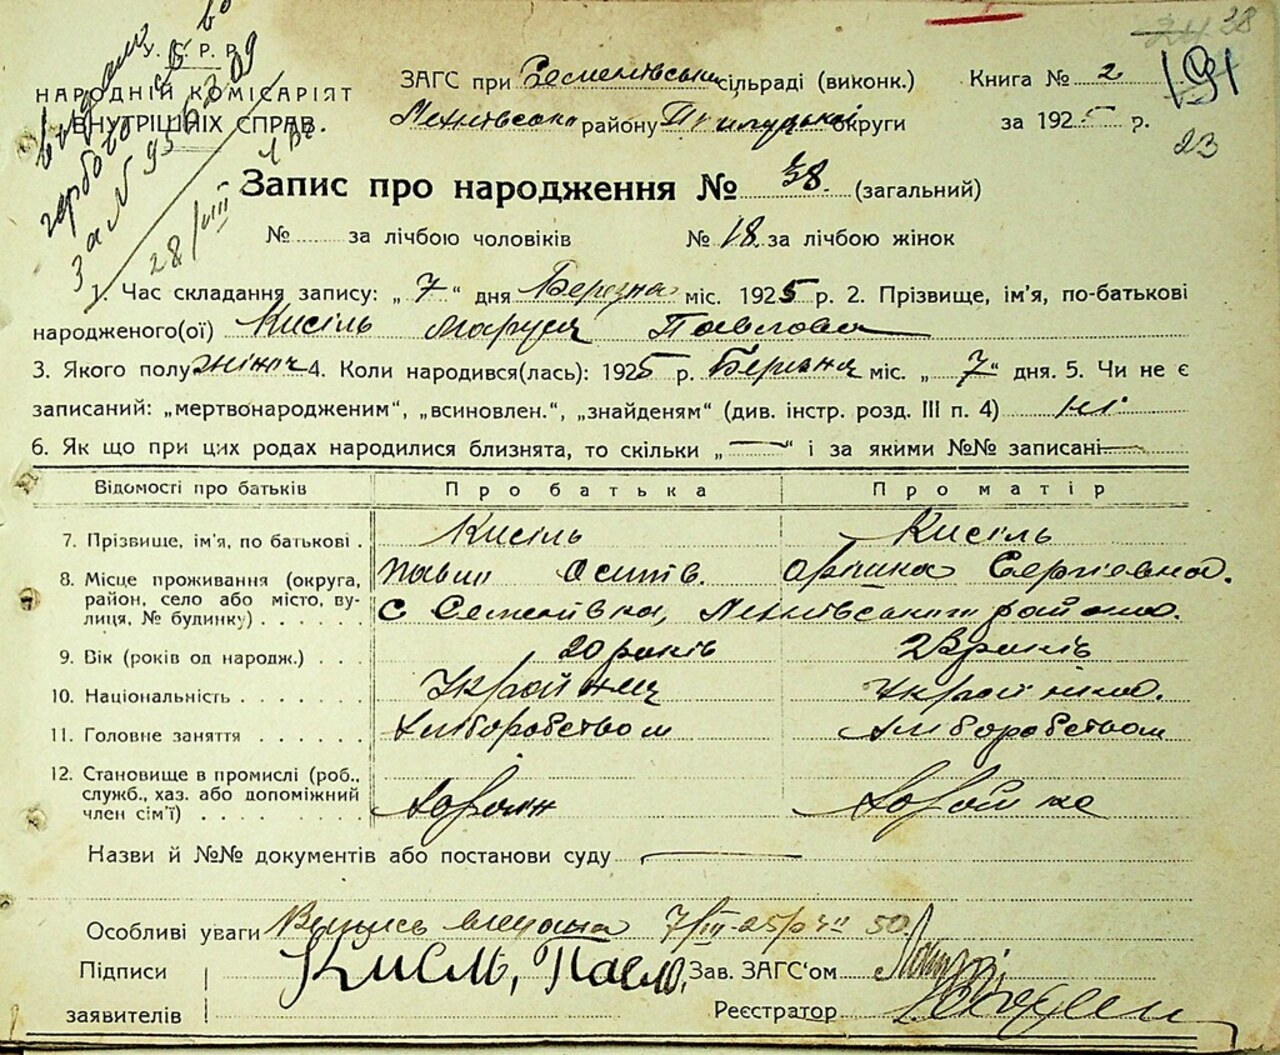 У. С. Р. Р.
НАРОДНІЙ КОМІСАРІЯТ
ВНУТРІШНІХ СПРАВ.
28/VIII
ЗАГС при Семенівській сільраді (виконк.)
району округи
Книга № 2
за 1925 р.
191
23
38
Запис про народження № 38. (загальний)
№ за лічбою чоловіків № 18. за лічбою жінок
1. Час складання запису: „ 7 “ дня Березня міс. 1925 р. 2. Прізвище, ім'я, по-батькові
народженого(ої) Кисіль Маруся Павлова
3. Якого полу жіноч 4. Коли народився(лась): 1925 р. Березня міс. „ 7 “ дня. 5. Чи не є
записаний: „мертвонародженим“, „всиновлен.“, „знайденям“ (див. інстр. розд. III п. 4) ні
6. Як що при цих родах народилися близнята, то скільки „ — “ і за якими №№ записані —
Відомості про батьків Про батька Про матір
7. Прізвище, ім'я, по батькові . Кисіль Кисіль
Павло Осипів. Сергіевна.
8. Місце проживання (округа, район, село або місто, вулиця, № будинку) . . . . . . с Семенівка, району.
9. Вік (років од народж.) . . . 20 років 23 років
10. Національність . . . . . . . Українец Українка.
11. Головне заняття . . . . . . Хліборобством Хліборобством
12. Становище в промислі (роб., служб., хаз. або допоміжний член сім'ї) . . . . . . . .
Назви й №№ документів або постанови суду —
Особливі уваги Випись 7/III-25 р 50.
Підписи
заявителів
Кисіль, Павло,
Зав. ЗАГС'ом
Реєстратор